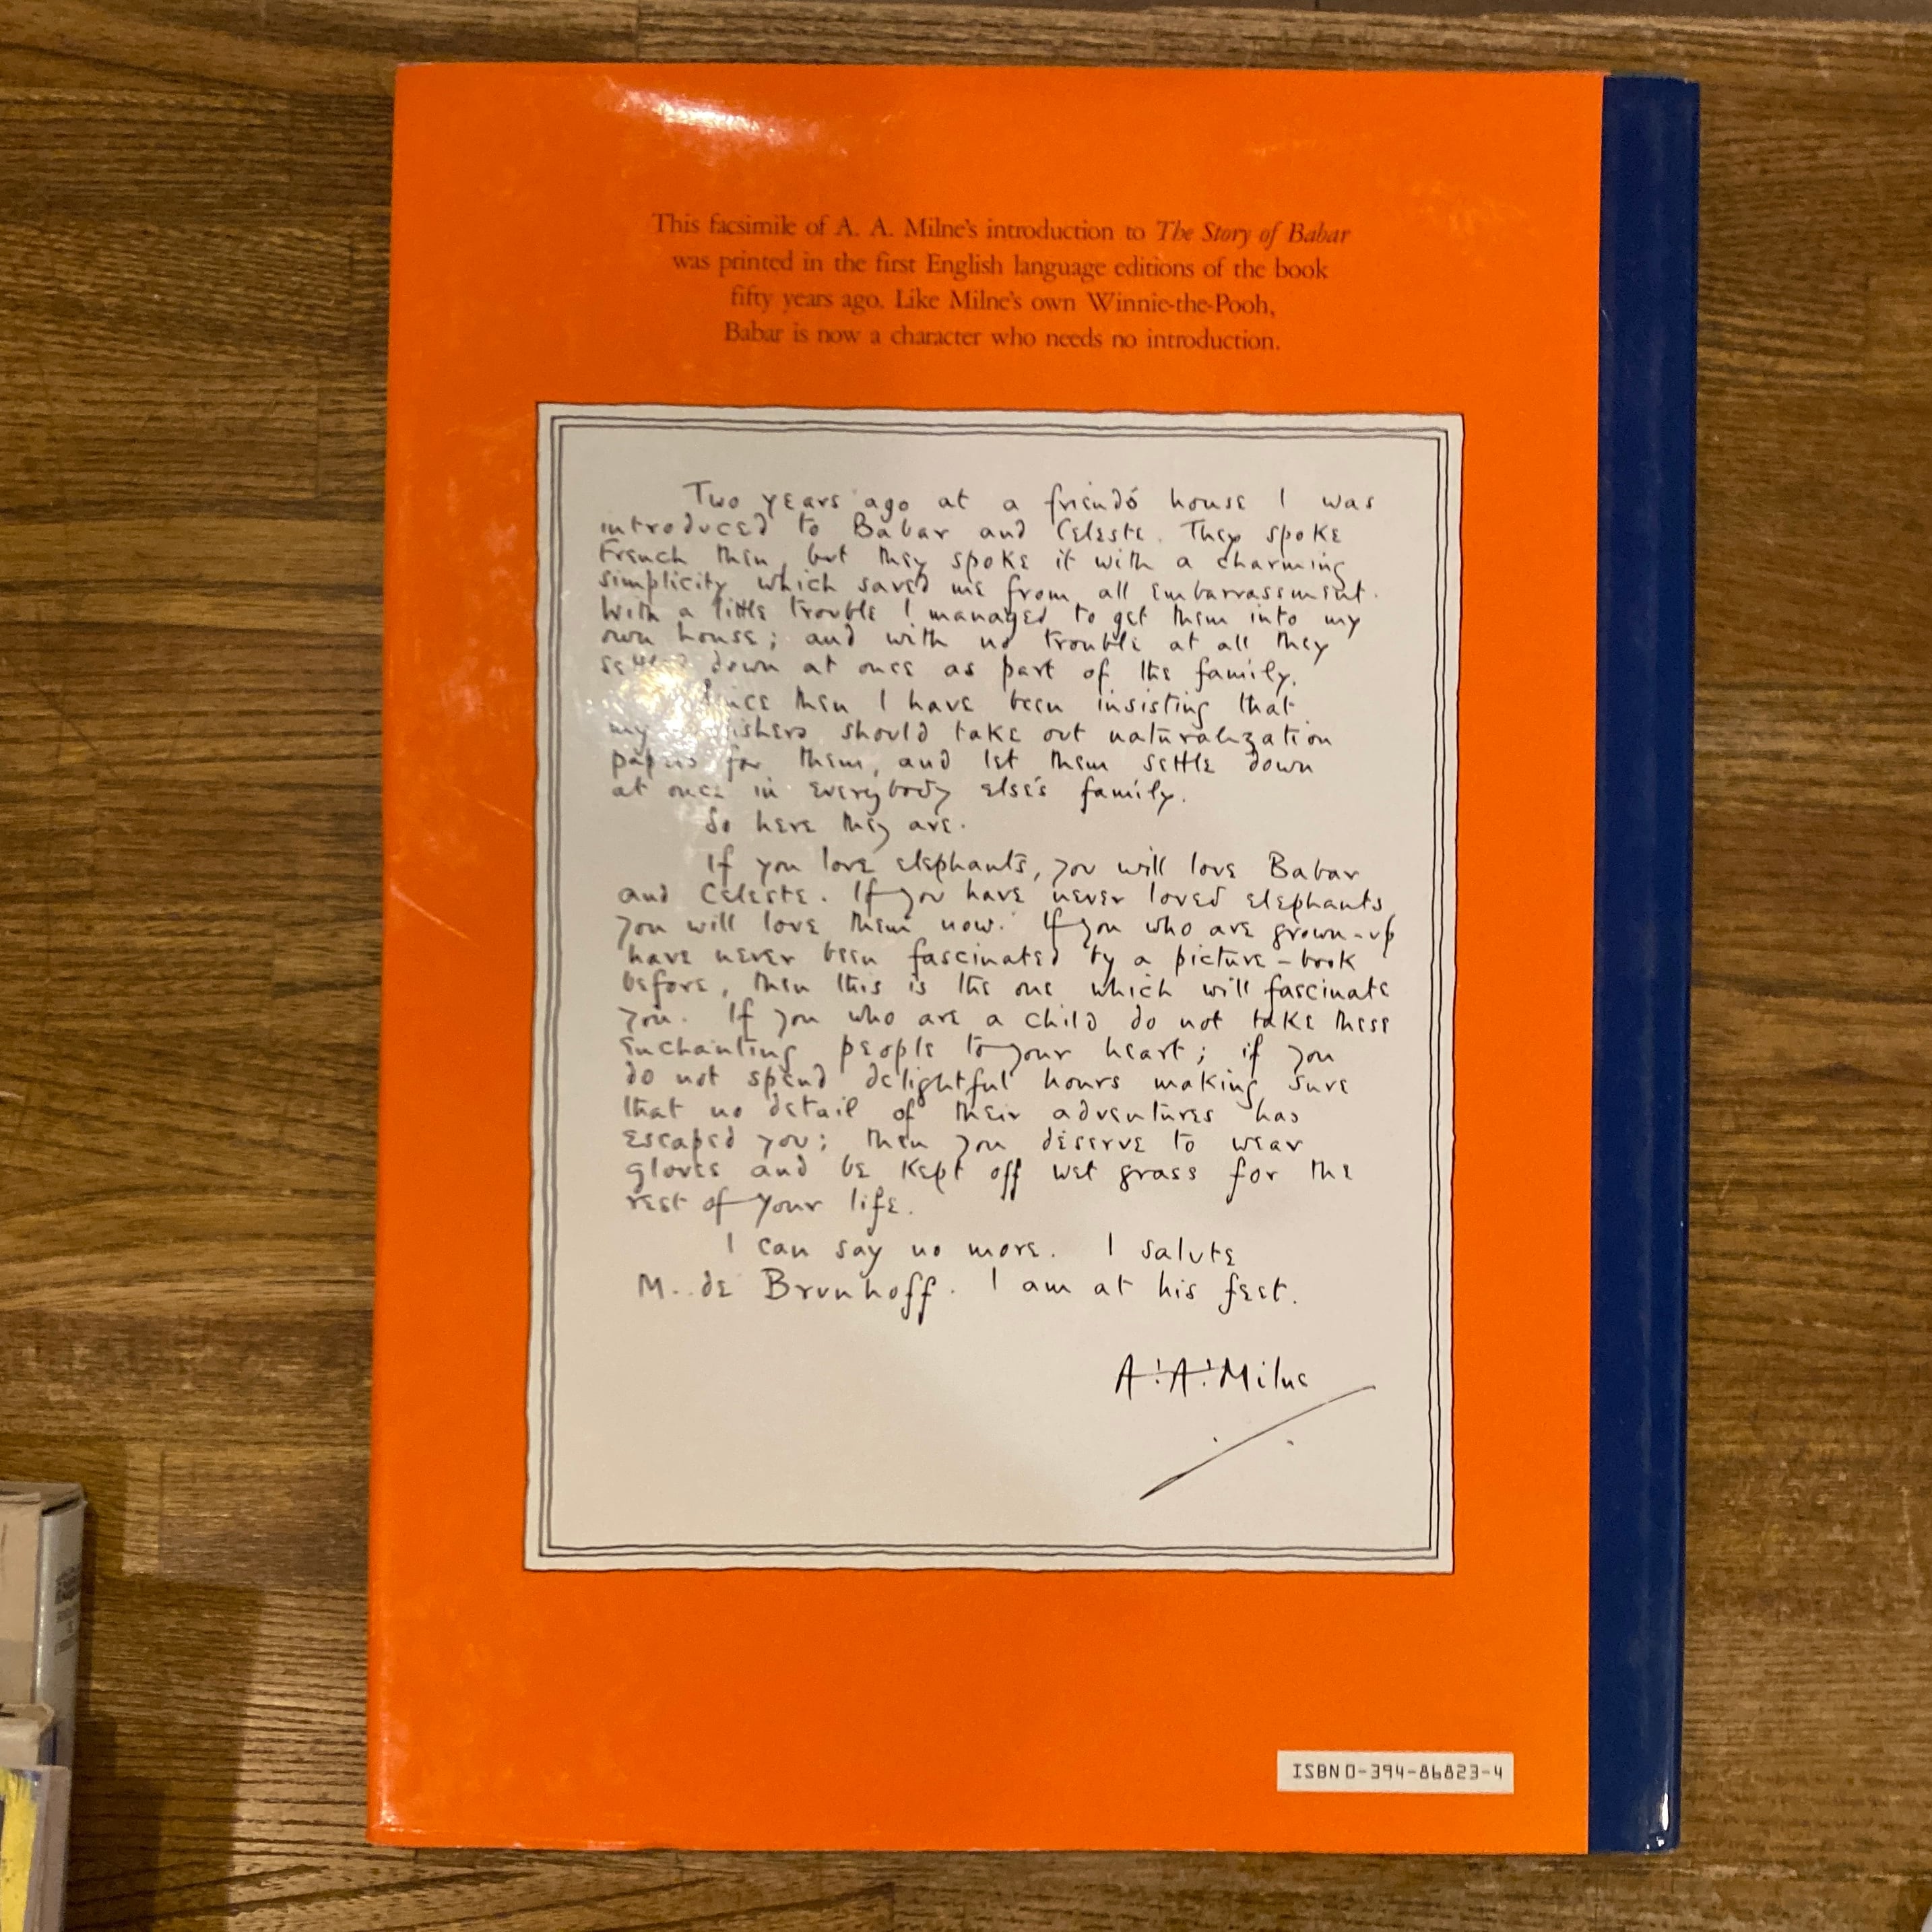 This facsimile of A. A. Milne's introduction to The Story of Babar
was printed in the first English language editions of the book
fifty years ago. Like Milne's own Winnie-the-Pooh,
Babar is now a character who needs no introduction.
Two years ago at a friend's house I was
introduced to Babar and Celeste. They spoke
French then, but they spoke it with a charming
simplicity which saved me from all embarrassment.
With a little trouble I managed to get them into my
own house; and with no trouble at all they
settled down at once as part of the family.
Since then I have been insisting that
my publishers should take out naturalization
papers for them, and let them settle down
at once in everybody else's family.
So here they are.
If you love elephants, you will love Babar
and Celeste. If you have never loved elephants
you will love them now. If you who are grown-up
have never been fascinated by a picture-book
before, then this is the one which will fascinate
you. If you who are a child do not take these
enchanting people to your heart; if you
do not spend delightful hours making sure
that no detail of their adventures has
escaped you; then you deserve to wear
gloves and be kept off wet grass for the
rest of your life.
I can say no more. I salute
M. de Brunhoff. I am at his feet.
A. A. Milne
ISBN 0-394-86823-4